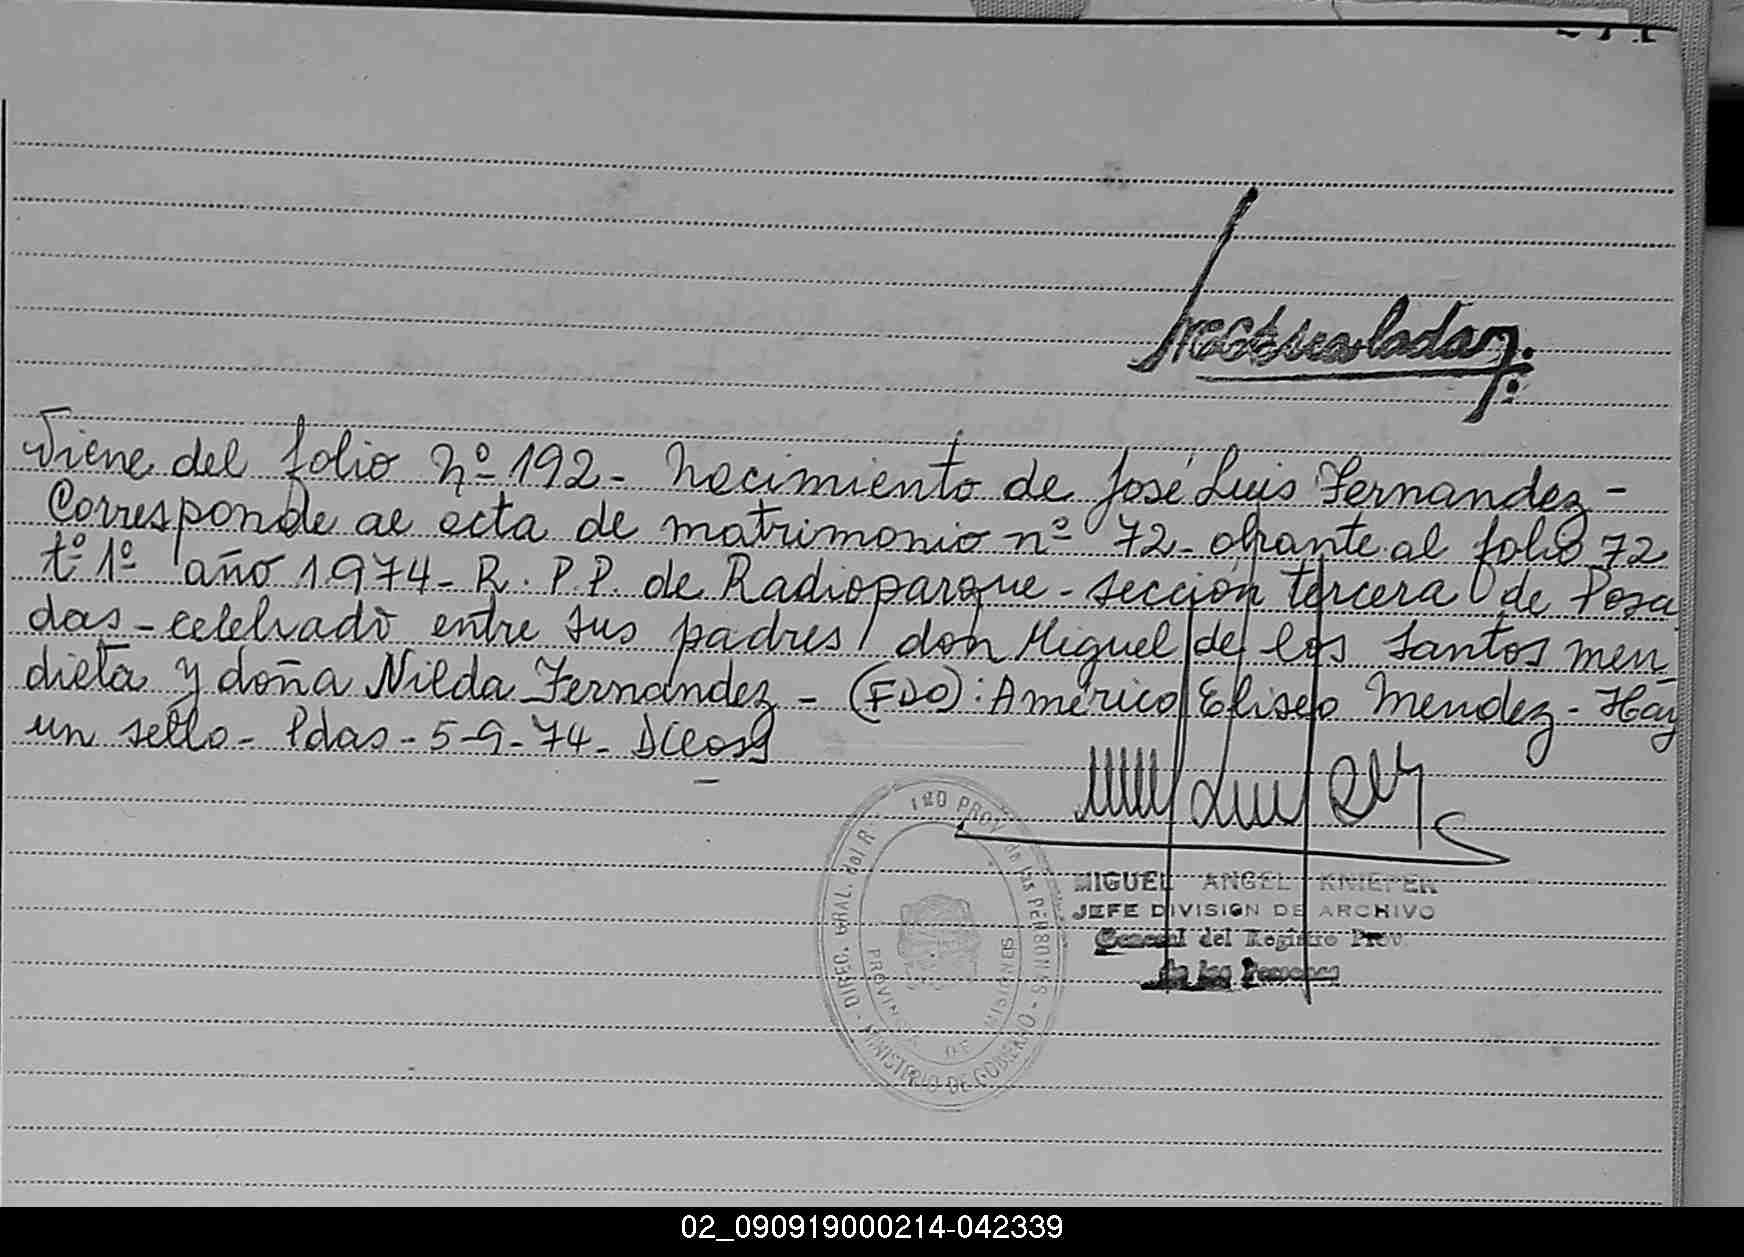 Viene del folio Nº 192 - Nacimiento de José Luis Fernandez -
Corresponde al acta de matrimonio nº 72 - obrante al folio 72
tº 1º año 1974 - R. P.P. de Radioparque - sección tercera de Posa
das - celebrado entre sus padres don Miguel de los Santos Men
dieta y doña Nilda Fernandez - (FDO): Américo Eliseo Mendez - Hay
un sello - Pdas - 5-9-74 -
DIREC. GRAL. del R PROV de las PERSONAS - MINISTERIO DE GOBIERNO -
PROVINCIA DE MISIONES
MIGUEL ANGEL KNIEPER
JEFE DIVISION DE ARCHIVO
General del Registro Prov.
de las Personas
02_090919000214-042339